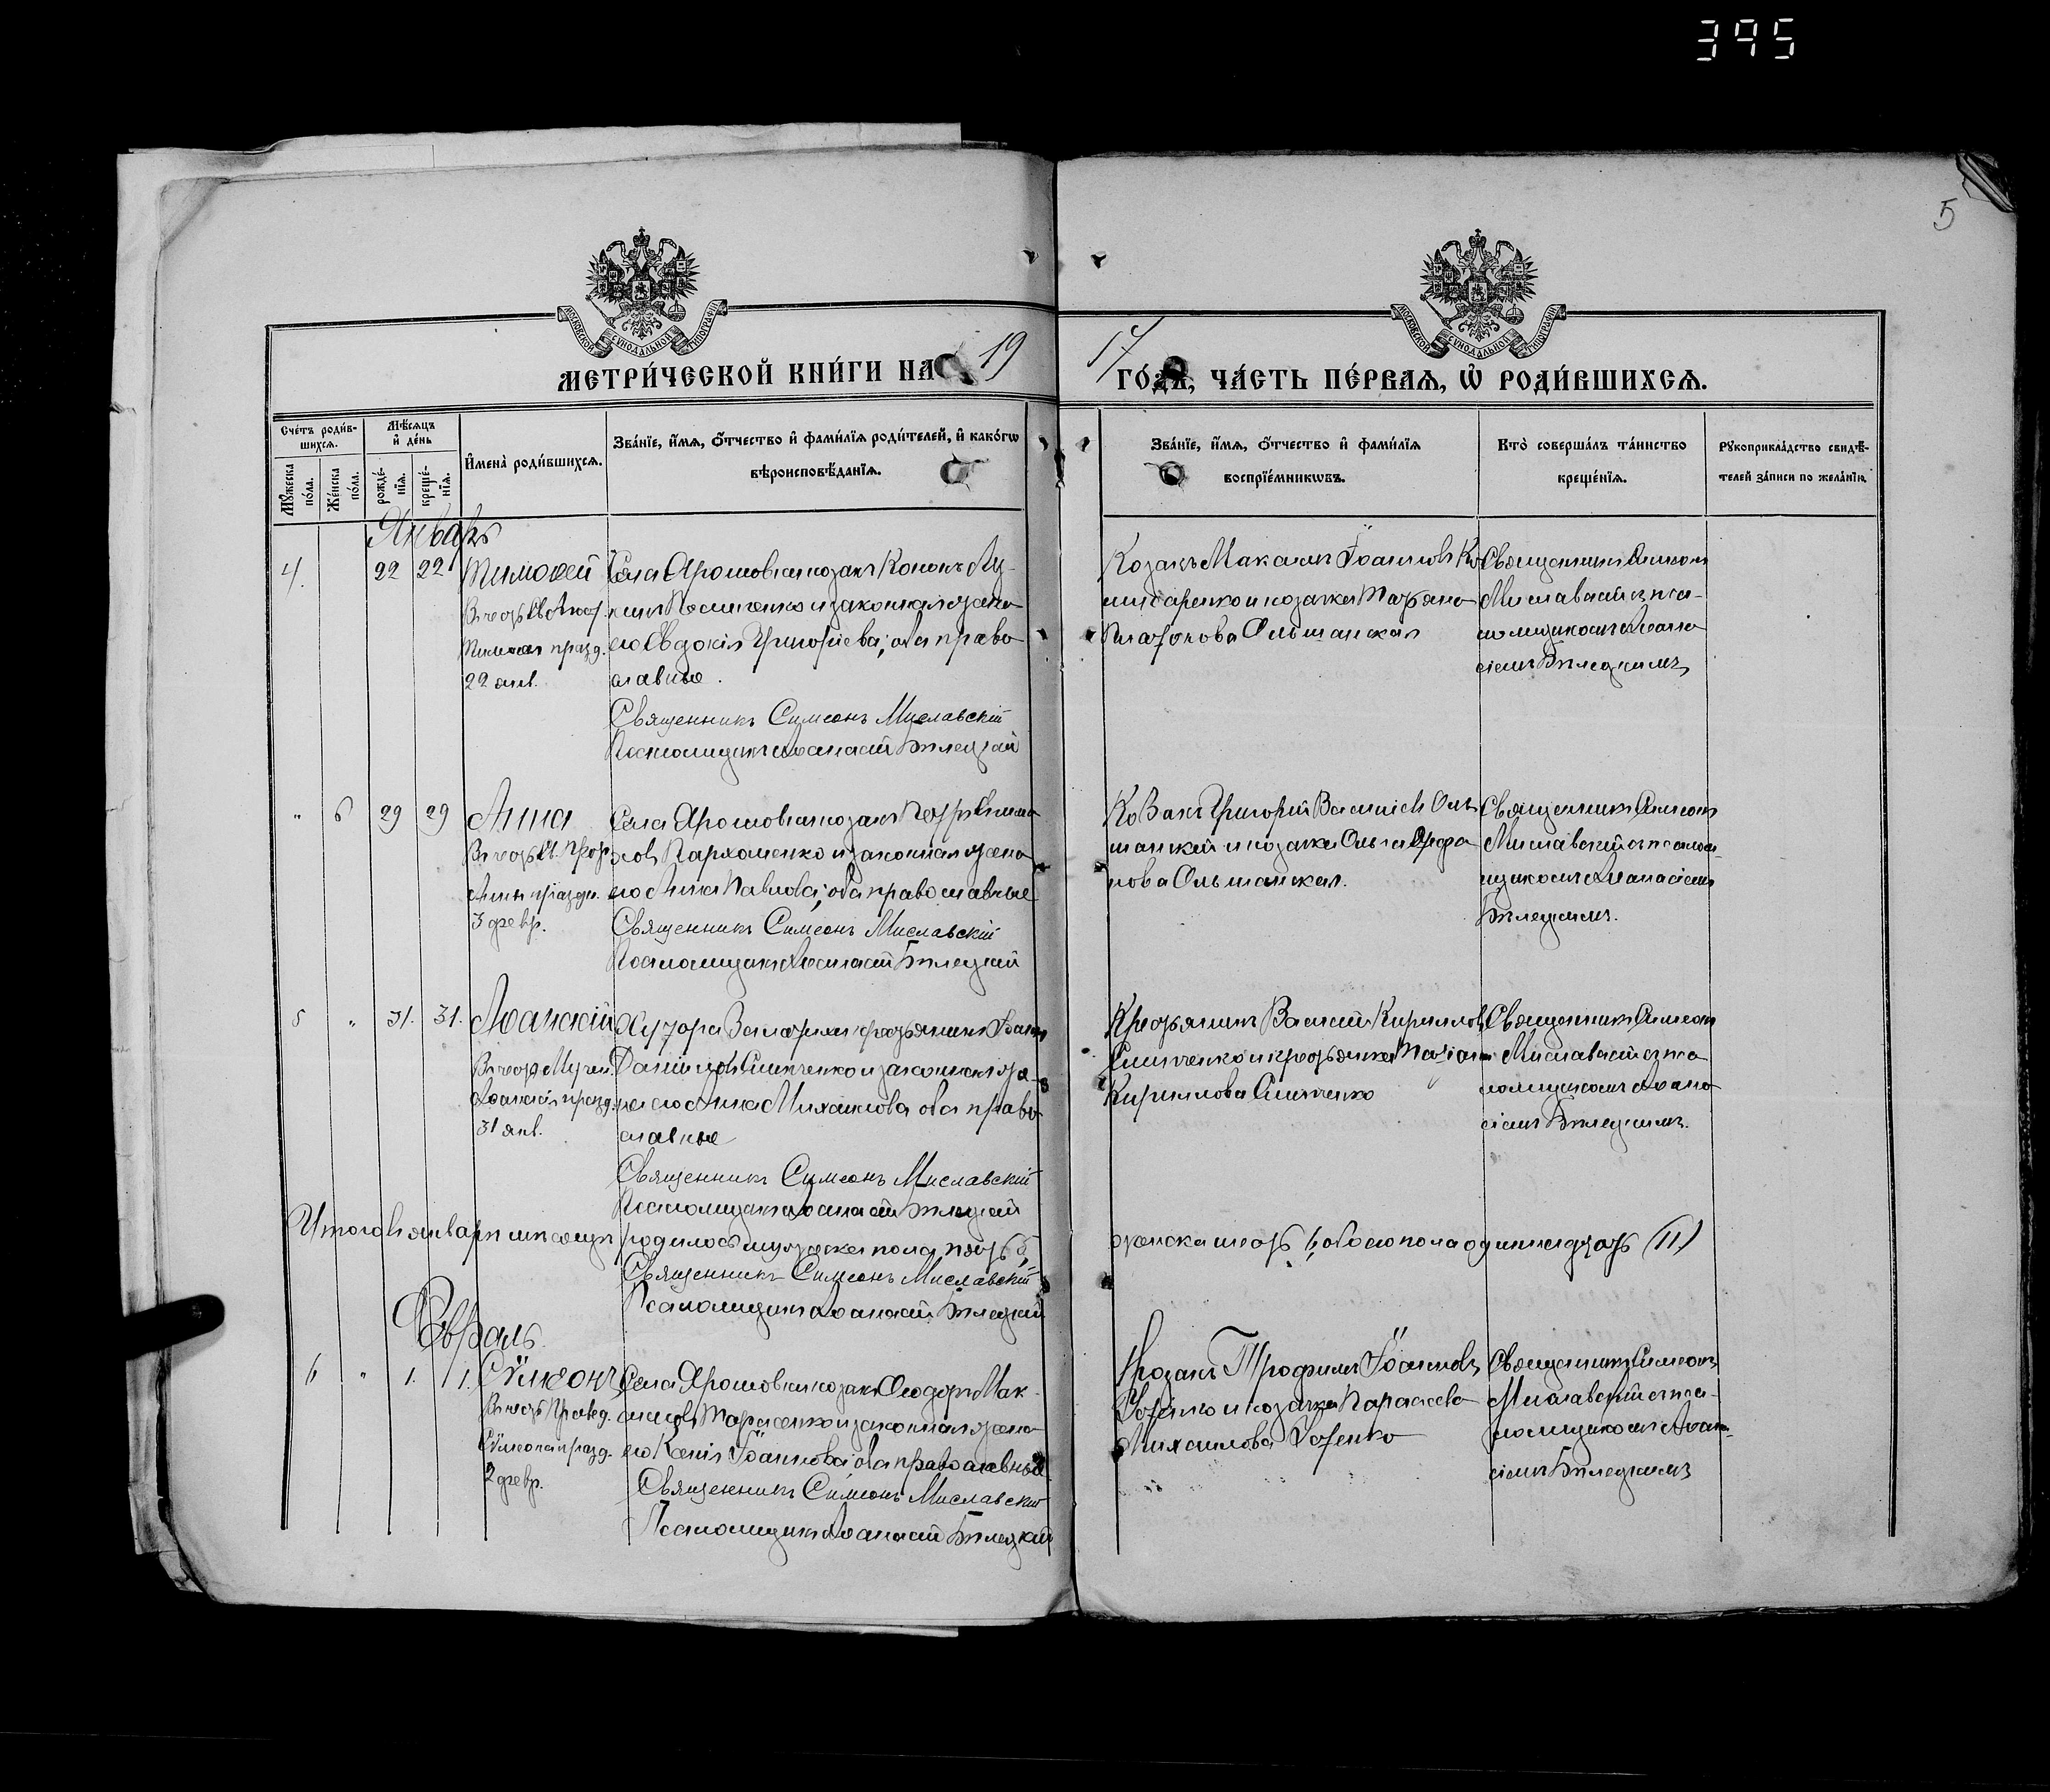 395
5
МОСКОВСКОЙ СѴНОДАЛЬНОЙ ТИПОГРАФІИ
МОСКОВСКОЙ СѴНОДАЛЬНОЙ ТИПОГРАФІИ
МЕТРИ́ЧЕСКОЙ КНИ́ГИ НА 19
17 ГО́ДЪ, ЧА́СТЬ ПЕ́РВАѦ, Ѡ҆ РОДИ́ВШИХСѦ.
Сче́тъ роди́в-
шихсѧ.
Мꙋ́жеска по́ла.
Же́нска по́ла.
Мѣ́сѧцъ
и҆ де́нь
рожде́-
нїѧ.
креще́-
нїѧ.
И҆мена̀ роди́вшихсѧ.
Зва́нїе, и҆́мѧ, ѻ҆́тчество и҆ фами́лїѧ роди́телей, и҆ како́гѡ
вѣроисповѣ́данїѧ.
Зва́нїе, и҆́мѧ, ѻ҆́тчество и҆ фами́лїѧ
воспрїе́мникѡвъ.
Кто̀ соверша́лъ та́инство
креще́нїѧ.
Рꙋкоприкла́дство свидѣ́-
телей за́писи по жела́нїю.
Январь
4. 22 22 Тимоѳей
Въ честь Св. Апос.
Тимоѳея празд.
22 янв.
Села Ярошовки козакъ Кононъ Лу-
кинъ и законная жена
его Евдокія Григоріева, оба право
славные.
Священникъ Симеонъ Миславскій
Псаломщикъ Аѳанасій Бѣлецкій
Козакъ Іоанновъ Ко
шударенко и козачка Татьяна
Платонова Ольшанская
Священникъ Симеонъ
Миславскій съ пса-
ломщикомъ Аѳана
сіемъ Бѣлецкимъ
" 6 29 29 Анна
Въ честь Св. Прор.
Анны праздн.
3 февр.
Села Ярошовки козакъ Петръ
Пархоменко и законная жена
его Анна Павлова, оба православные
Священникъ Симеонъ Миславскій
Псаломщикъ Аѳанасій Бѣлецкій
Козакъ Григорій Василіевъ Оль
шанскій и козачка Ольга
Ольшанская.
Священникъ Симеонъ
Миславскій съ псалом-
щикомъ Аѳанасіемъ
Бѣлецкимъ.
5 " 31. 31. Аѳанасій
Въ честь Мучен.
Аѳанасія празд.
31 янв.
Хутора крестьянинъ Іоаннъ
Даніиловъ Симченко и законная же-
на его Анна Михаилова оба право
славные
Священникъ Симеонъ Миславскій
Псаломщикъ Аѳанасій Бѣлецкій
Крестьянинъ Василій Кирилловъ
Симченко и крестьянка
Кириллова Симченко
Священникъ Симеонъ
Миславскій съ пса
ломщикомъ Аѳана
сіемъ Бѣлецкимъ.
Итого въ январѣ мѣсяцѣ родилось мужеска пола пять 5,
женска шесть 6, обоего пола одиннадцать (11)
Священникъ Симеонъ Миславскій
Псаломщикъ Аѳанасій Бѣлецкій
Февраль
6 " 1. 1. Сѵмеонъ
Въ честь Правед.
Сѵмеона празд.
2 февр.
Села Ярошовки козакъ Ѳеодоръ Мак-
симовъ Тарасенко и законная жена
его Ксенія Іоаннова оба православные
Священникъ Симеонъ Миславскій
Псаломщикъ Аѳанасій Бѣлецкій
Козакъ Трофимъ Іоанновъ
и козачка Параскева
Михаилова
Священникъ Симеонъ
Миславскій съ пса-
ломщикомъ Аѳана-
сіемъ Бѣлецкимъ